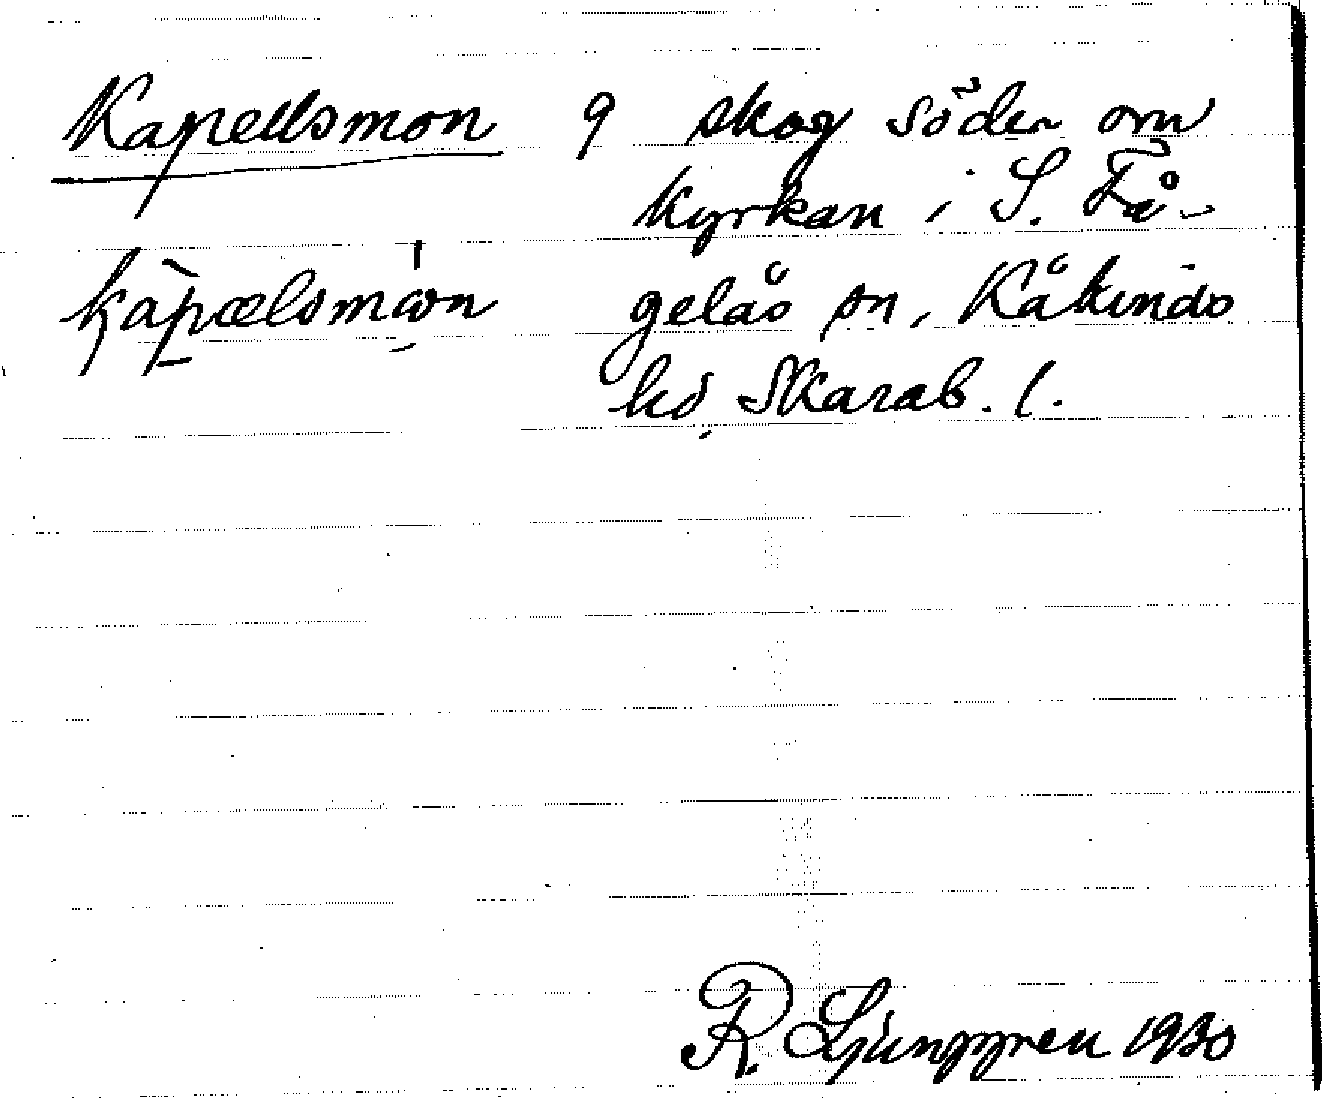 Kapellsmon 9 skog söder om
kyrkan i S. Få-
kápælsmón gelås sn, Kåkinds
hd, Skarab. l.
R. Ljunggren 1930